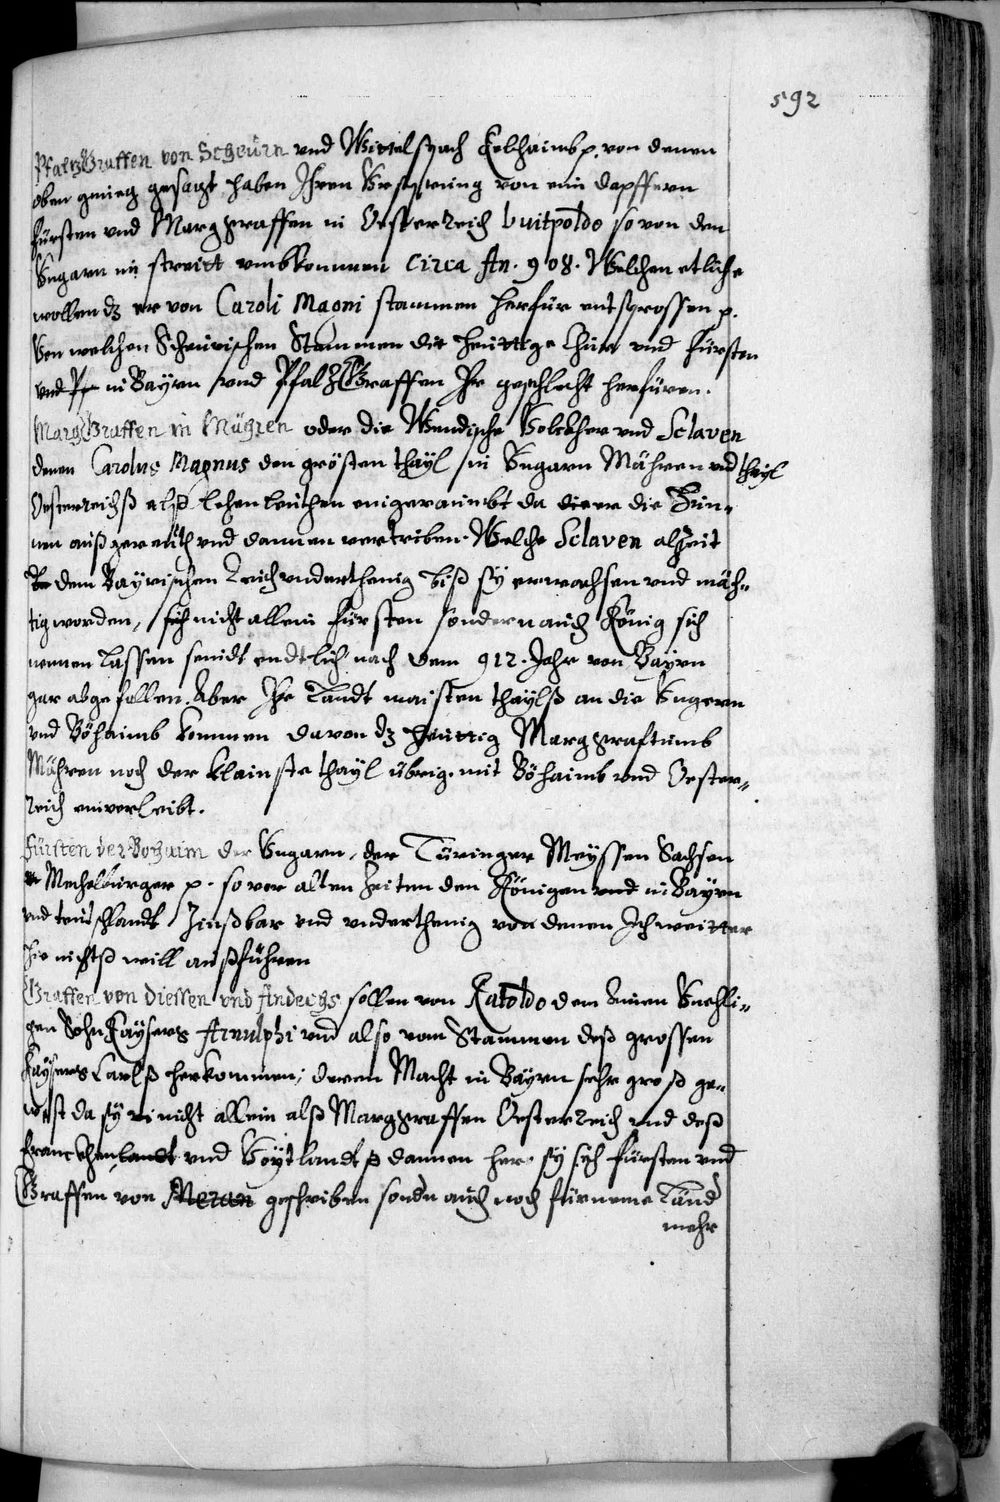 592
PfaltzGraffen von Scheurn vnd Wittelspach Kelhaimb p. von denen
oben gnueg gesagt haben Ihren Vrsprung von ein dapffern
Fürsten vnd Marggraffen in Oesterreich Luitpoldo so von den
Vngarn im streitt vmbkommen circa An. 908. Welchen etliche
wollen dz er von Caroli Magni stammen herfür entsprossen p.
Von welchen Scheirischen Stammen die heuttige Chur vnd Fürsten
vnd Pf in Bayrn vnd PfaltzGraffen Ihr geschlecht herfüren.
MargGraffen in Mähren oder die Wendische Völckher vnd Sclaven
denen Carolus Magnus den grösten thayl in Vngarn Mähren vnd thayl
Oesterreichß alß lehenleuthen eingeraumbt da er die Hun-
nen außgereuth vnd dannen vertriben. Welche Sclaven alzeit
dem Bayrischen Reich vnderthenig biß sy erwachsen vnd mäch-
tig worden, sich nicht allein Fürsten sondern auch König sich
nennen lassen seindt endtlich nach dem 912. Jahr von Bayrn
gar abgefallen. Aber Ihr Landt maisten thaylß an die Vngern
vnd Böhaimb kommen davon dz heuttig Marggraftumb
Mähren noch der klainste thayl übrig. mit Böhaimb vnd Oester-
reich einverleibt.
Fürsten der Bohaim der Vngarn, der Türinger Meyssen Sachsen
Mechelburger p. so vor alten Zeiten den Königen vnd in Bayrn
vnd teutschlandt Zinßbar vnd vnderthenig von denen Ich weitter
hie nichtß will außführen
Graffen von Diessen vnd Andechs sollen von Ratoldo dem Ainen Vnehli-
gen Sohn Kaysers Arnulphi vnd also vom Stammen deß grossen
Kaysers Carlß herkommen, deren Macht in Bayrn sehr groß ge-
west da sy nicht allein alß Marggraffen Oesterreich vnd deß
Franckhenlandt vnd Voytlandt p dannen her sy sich Fürsten vnd
Graffen von Meran geschriben sondn auch noch fürneme Länd
mehr